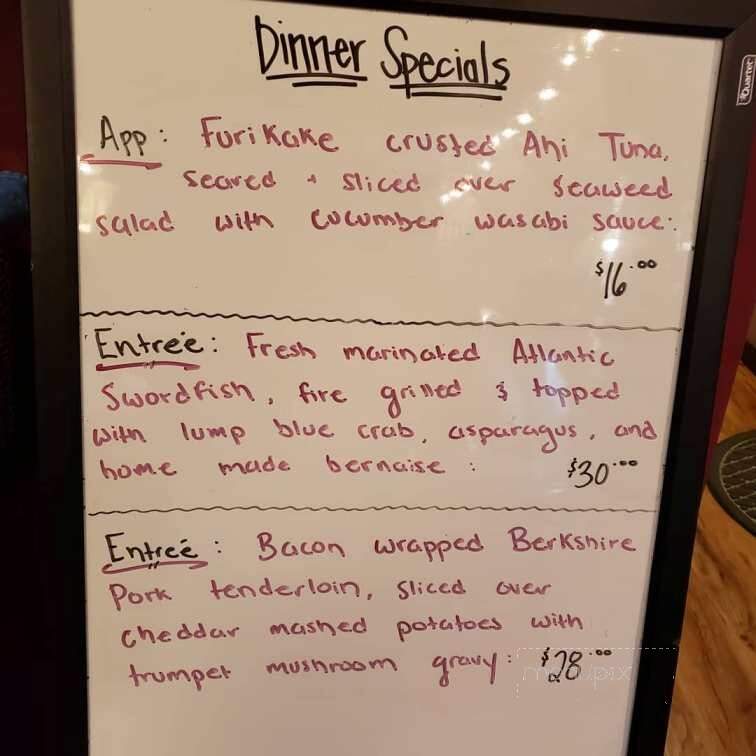 Dinner Specials
App: Furikake crusted Ahi Tuna,
seared + sliced over seaweed
salad with cucumber wasabi sauce:
$16.00
Entreé: Fresh marinated Atlantic
Swordfish, fire grilled & topped
with lump blue crab, asparagus, and
home made bernaise : $30.00
Entreé: Bacon wrapped Berkshire
Pork tenderloin, sliced over
cheddar mashed potatoes with
trumpet mushroom gravy: $28.00
menupix
Quartet